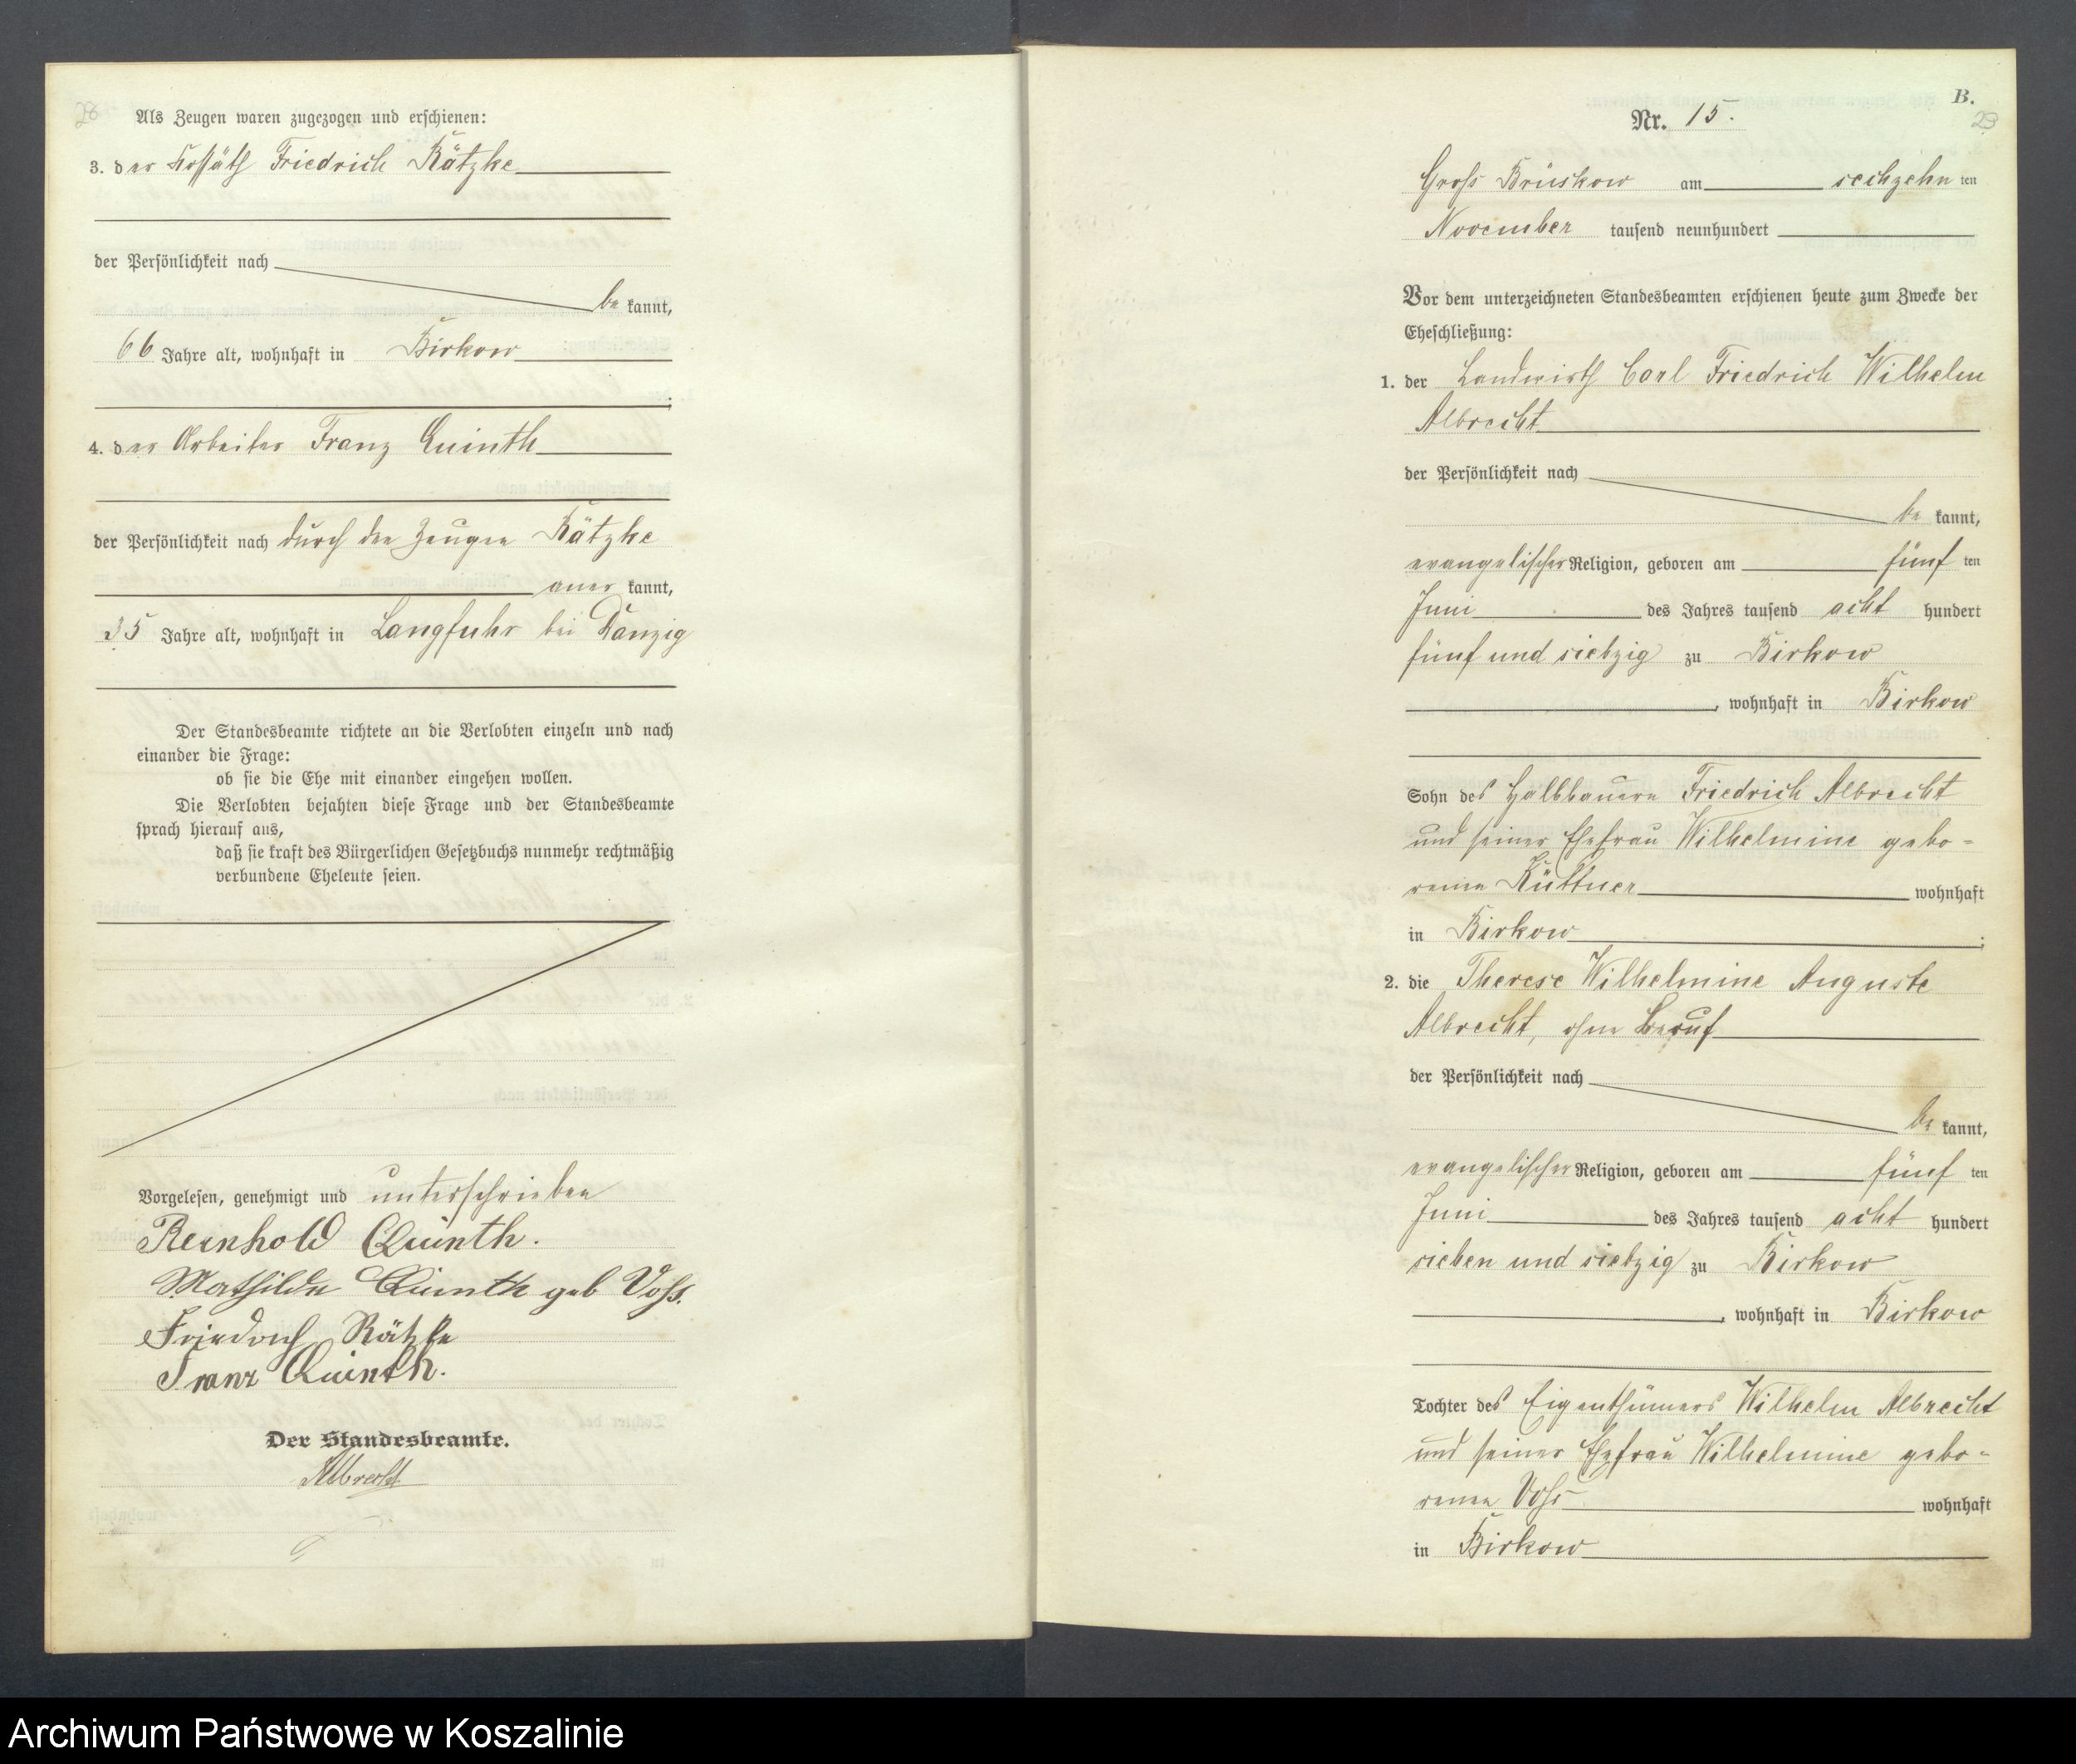 28
Als Zeugen waren zugezogen und erschienen:
3. der Kossäth Friedrich Kätzke
der Persönlichkeit nach
be kannt,
66 Jahre alt, wohnhaft in Birkow
;
4. der Arbeiter Franz Quinth
der Persönlichkeit nach durch den Zeugen Kätzke
aner kannt,
35 Jahre alt, wohnhaft in Langfuhr bei Danzig
Der Standesbeamte richtete an die Verlobten einzeln und nach
einander die Frage:
ob sie die Ehe mit einander eingehen wollen.
Die Verlobten bejahten diese Frage und der Standesbeamte
sprach hierauf aus,
daß sie kraft des Bürgerlichen Gesetzbuchs nunmehr rechtmäßig
verbundene Eheleute seien.
Vorgelesen, genehmigt und unterschrieben
Reinhold Quinth.
Mathilde Quinth geb Voss.
Friedrich Kätzke
Franz Quinth.
Der Standesbeamte.
Albrecht
B.
29
Nr. 15.
Gross Brüskow am sechzehn ten
November tausend neunhundert
Vor dem unterzeichneten Standesbeamten erschienen heute zum Zwecke der
Eheschließung:
1. der Landwirth Carl Friedrich Wilhelm
Albrecht
der Persönlichkeit nach
be kannt,
evangelischer Religion, geboren am fünf ten
Juni des Jahres tausend acht hundert
fünf und siebzig zu Birkow
, wohnhaft in Birkow
Sohn des Halbbauern Friedrich Albrecht
und seiner Ehefrau Wilhelmine gebo-
renen Küttner wohnhaft
in Birkow ;
2. die Therese Wilhelmine Auguste
Albrecht, ohne Beruf
der Persönlichkeit nach
be kannt,
evangelischer Religion, geboren am fünf ten
Juni des Jahres tausend acht hundert
sieben und siebzig zu Birkow
, wohnhaft in Birkow
Tochter des Eigenthümers Wilhelm Albrecht
und seiner Ehefrau Wilhelmine gebo-
renen Voss wohnhaft
in Birkow
Archiwum Państwowe w Koszalinie